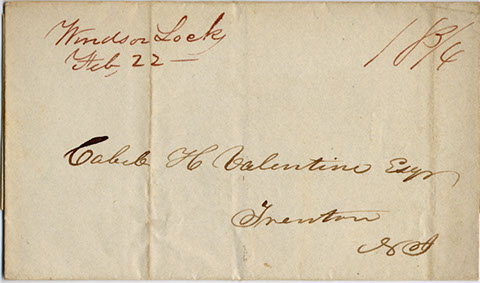 Windsor Locks
Feb 22 — 18¾
Caleb H Valentine Esqr
Trenton
NJ